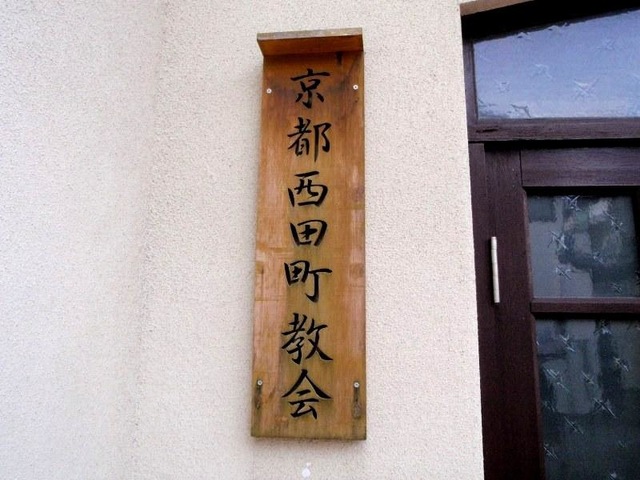 京都西田町教会